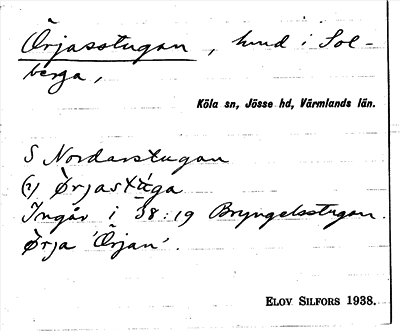 Örjasstugan, hmd i Sol-
berga,
Köla sn, Jösse hd, Värmlands län.
S Nordarstugan
(1) Ørjastuga
Ingår i 58:19 Bryngelsstugan.
Ørja 'Örjan'.
ELOV SILFORS 1938.